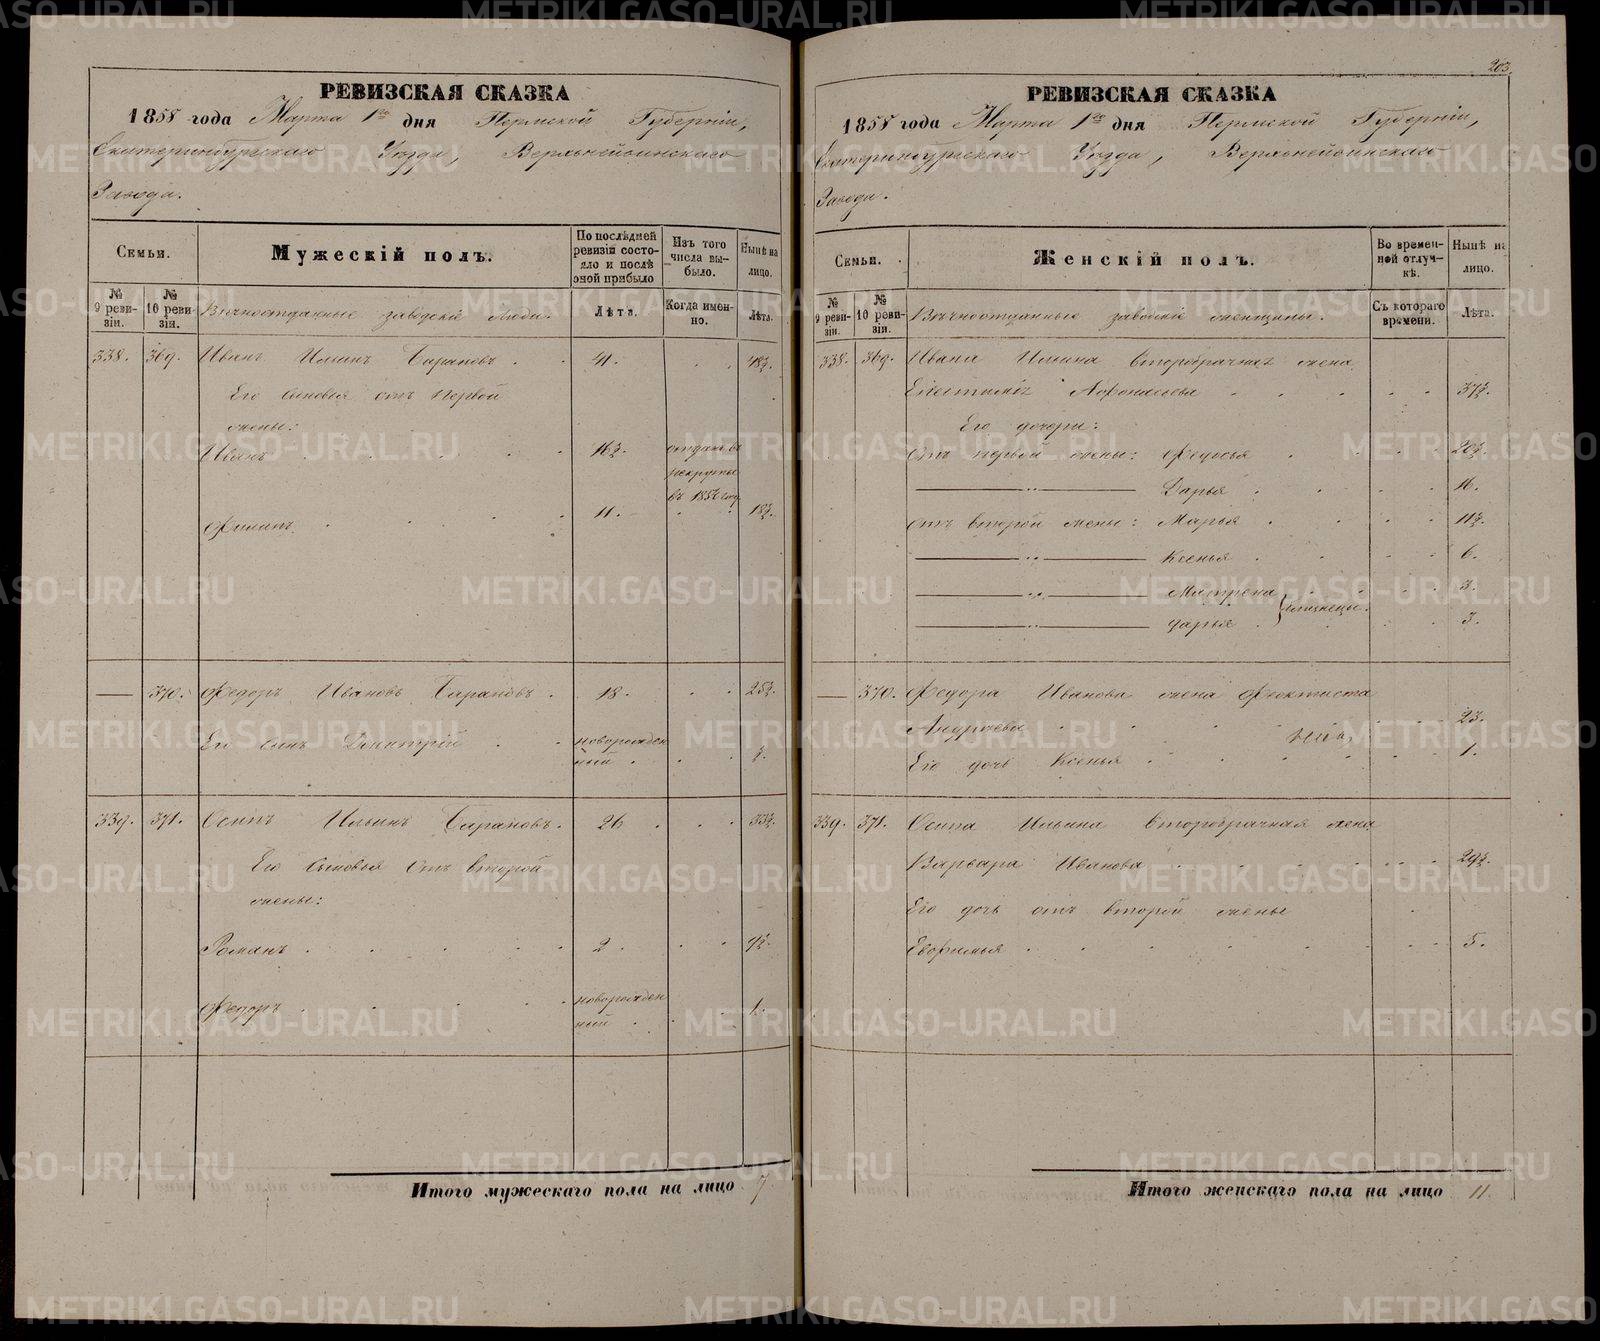 РЕВИЗСКАЯ СКАЗКА
1858 года Марта 1го дня Пермской Губерніи,
Екатеринбургскаго Уезда, Верхнейвинскаго
Завода.
Семьи.
Мужескій полъ.
По послѣдней ревизіи состояло и послѣ оной прибыло
Изъ того числа выбыло.
Нынѣ на лицо.
№ 9 ревизіи.
№ 10 ревизіи.
Вѣчноотданные заводскіе люди.
Лѣта.
Когда именно.
Лѣта.
338. 369. Иванъ Ильинъ Барановъ . . 41. . . 48½.
Его сыновья отъ первой
жены:
Иванъ . . . . . 16½. отданъ въ рекруты въ 185 году
Филипъ . . . . 11. . . 18½.
— 370. Федоръ Ивановъ Барановъ . 18. . . 25½.
Его сынъ Дмитрій . . новорожденный . . . ½.
339. 371. Осипъ Ильинъ Барановъ. 26 . . . 33½.
Его сыновья отъ второй
жены:
Романъ . . . . . 2 . . . 9½.
Федоръ . . . . . новорожденный . . . 1.
Итого мужескаго пола на лицо 7
203.
РЕВИЗСКАЯ СКАЗКА
1858 года Марта 1го дня Пермской Губерніи,
Екатеринбургскаго Уезда, Верхнейвинскаго
Завода.
Семьи.
Женскій полъ.
Во временной отлучкѣ.
Нынѣ на лицо.
№ 9 ревизіи.
№ 10 ревизіи.
Вѣчноотданные заводскіе женщины.
Съ котораго времени.
Лѣта.
338. 369. Ивана Ильина второбрачная жена
Афонасьева . . . . . . 37½.
Его дочери:
отъ первой жены: Федосья . . . . 20½.
— „ — Дарья . . . . . 16.
отъ второй жены: Марья . . . . . 11½.
— „ — Ксенья . . . . . 6.
— „ — Матрена . . . . 3.
— „ — Дарья . } близнецы. . . . 3.
— 370. Федора Иванова жена Феоктиста
Андреева . . . . . . . . 23.
Его дочь Ксенья . . . . . . . 1.
339. 371. Осипа Ильина второбрачная жена
Варвара Иванова . . . . . . . 29½.
Его дочь отъ второй жены .
Евфимья . . . . . . . 5.
Итого женскаго пола на лицо 11.
METRIKI.GASO-URAL.RU